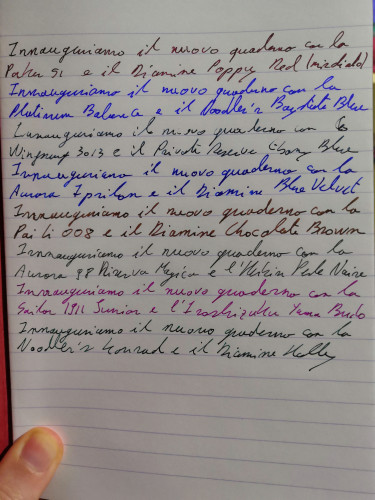 Innauguriamo il nuovo quaderno con la
Parker 51 e il Diamine Poppy Red (micidiale)
Innauguriamo il nuovo quaderno con la
Platinum Balance e il Noodler's Bay State Blue
Innauguriamo il nuovo quaderno con la
Wingsung 3013 e il Private Reserve Ebony Blue
Innauguriamo il nuovo quaderno con la
Aurora Ipsilon e il Diamine Blue Velvet
Innauguriamo il nuovo quaderno con la
Paili 008 e il Diamine Chocolate Brown
Innnauguriamo il nuovo quaderno con la
Aurora 98 Riserva Magica e l'Herbin Perle Noire
Innauguriamo il nuovo quaderno con la
Sailor 1911 Junior e l'Iroshizuku Yama Budo
Innauguriamo il nuovo quaderno con la
Noodler's Konrad e il Diamine